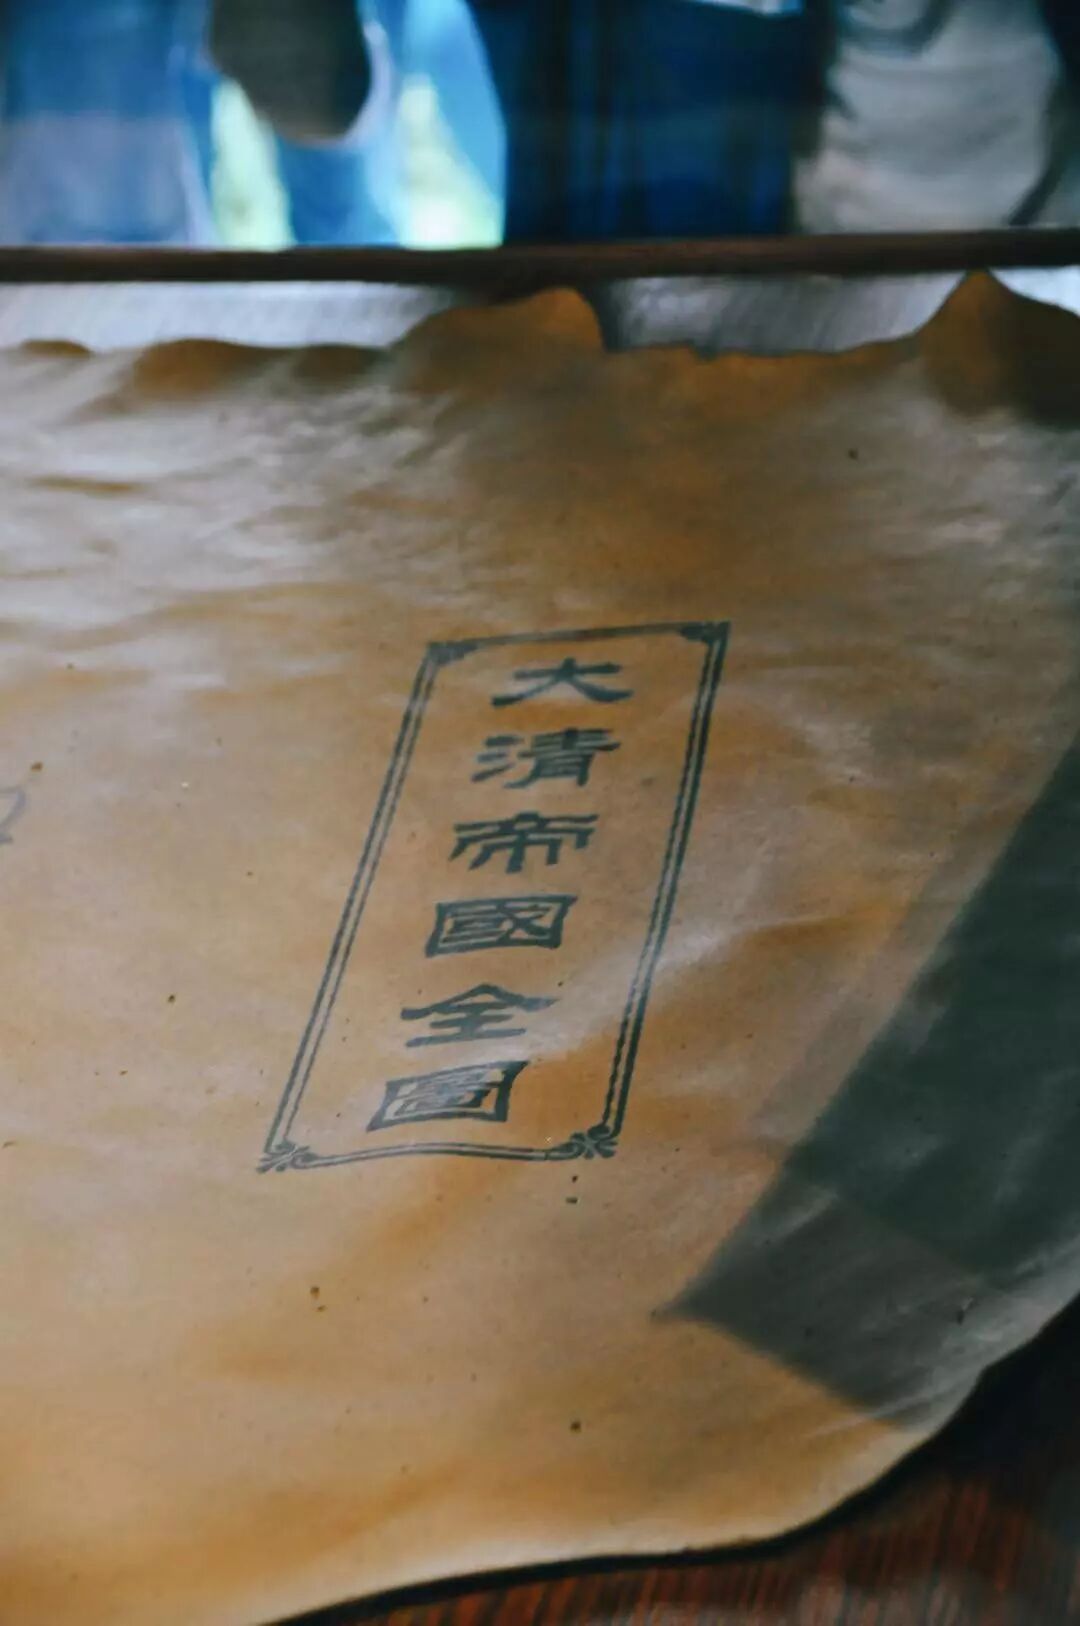 大清帝國全圖